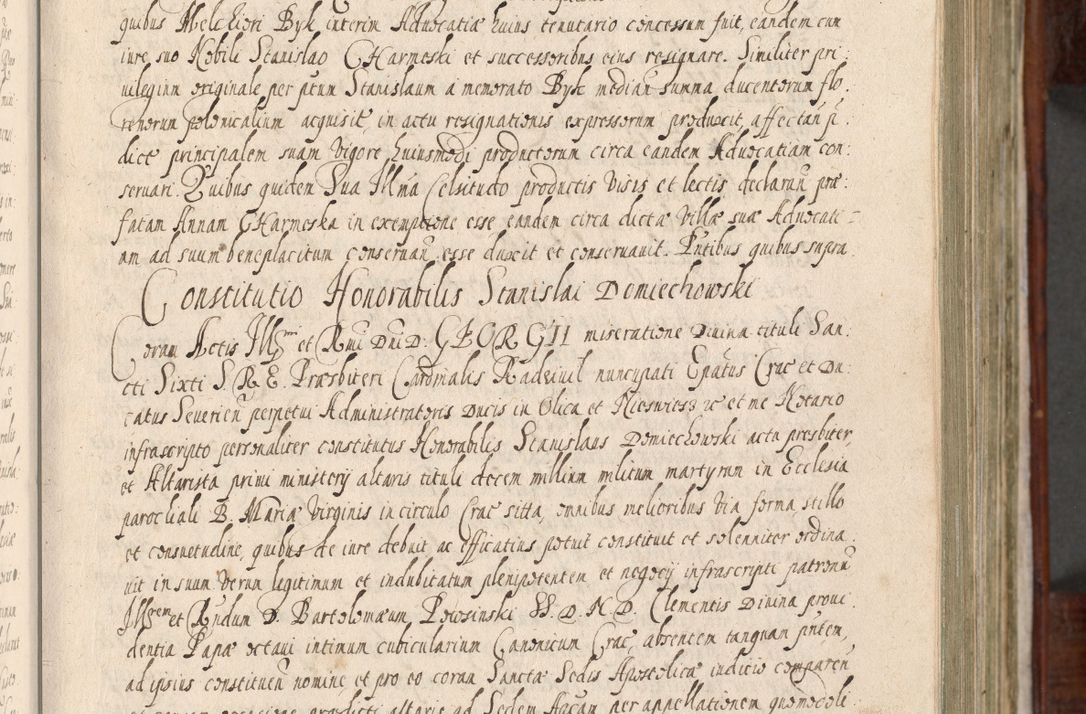 quibus Melchiori Byk interim Aduocatiæ huius tenutario concessum fuit, eandem cum
iure suo Nobili Stanislao GHarmeski et successoribus eius resignare. Similiter pri:
uilegium originale per ptum Stanislaum à memorato Byk median̄ summa ducentorum flo:
renorum polonicalium acquisit, in actu resignationis expressorum produxit, affectan̄ p̄:
dict principalem suam vigore huiusmodi productorum circa eandem Aduocatiam con:
seruari. Quibus quidem Sua Illma Celsitudo productis visis et lectis declaran̄ præ:
fatam Annam GHarmeska in exemptione esse eandem circa dictæ Villæ suæ Aduocati=
am ad suum beneplacitum conseruan̄ esse duxit et conseruauit. Pntibus quibus supra.
Constitutio Honorabilis Stanislai Domiechowski
Coram Actis Illmi et Rmi Dni D. GEORGII miseratione Diuina tituli San:
cti Sixti S. R. E. Præsbiteri Cardinalis Radziuil nuncupati Epatus Crac et Du:
catus Seuerien̄ perpetui Administratoris Ducis in Olica et Nieswies etc et me Notario
infrascripto personaliter constitutus Honorabilis Stanislaus Domiechowski actu presbiter,
et Altarista primi ministerij altaris tituli decem millium militum martyrum in Ecclesia
parochiali B. Mariæ Virginis in circulo Crac sitta, omnibus melioribus via forma, stillo
et consuetudine, quibus de iure debuit, ac efficatius potuit constituit et solenniter ordina:
uit in suum verum legitimum et indubitatum plenipotentem et negocij infrascripti patronū
Illrem et Rndum D. Bartolomæum Powsinski SS. D. N. D. Clementis Diuina proui:
dentia Papæ octaui intimum cubicularium Canonicum Crac, absentem tanquam pntem,
ad ipsius constituen̄ nomine, et pro eo coram Sanctæ Sedis Apostolicæ iuditio comparen̄
prædicti altaris ad Sedem Apcam per appellationem quomodoli: